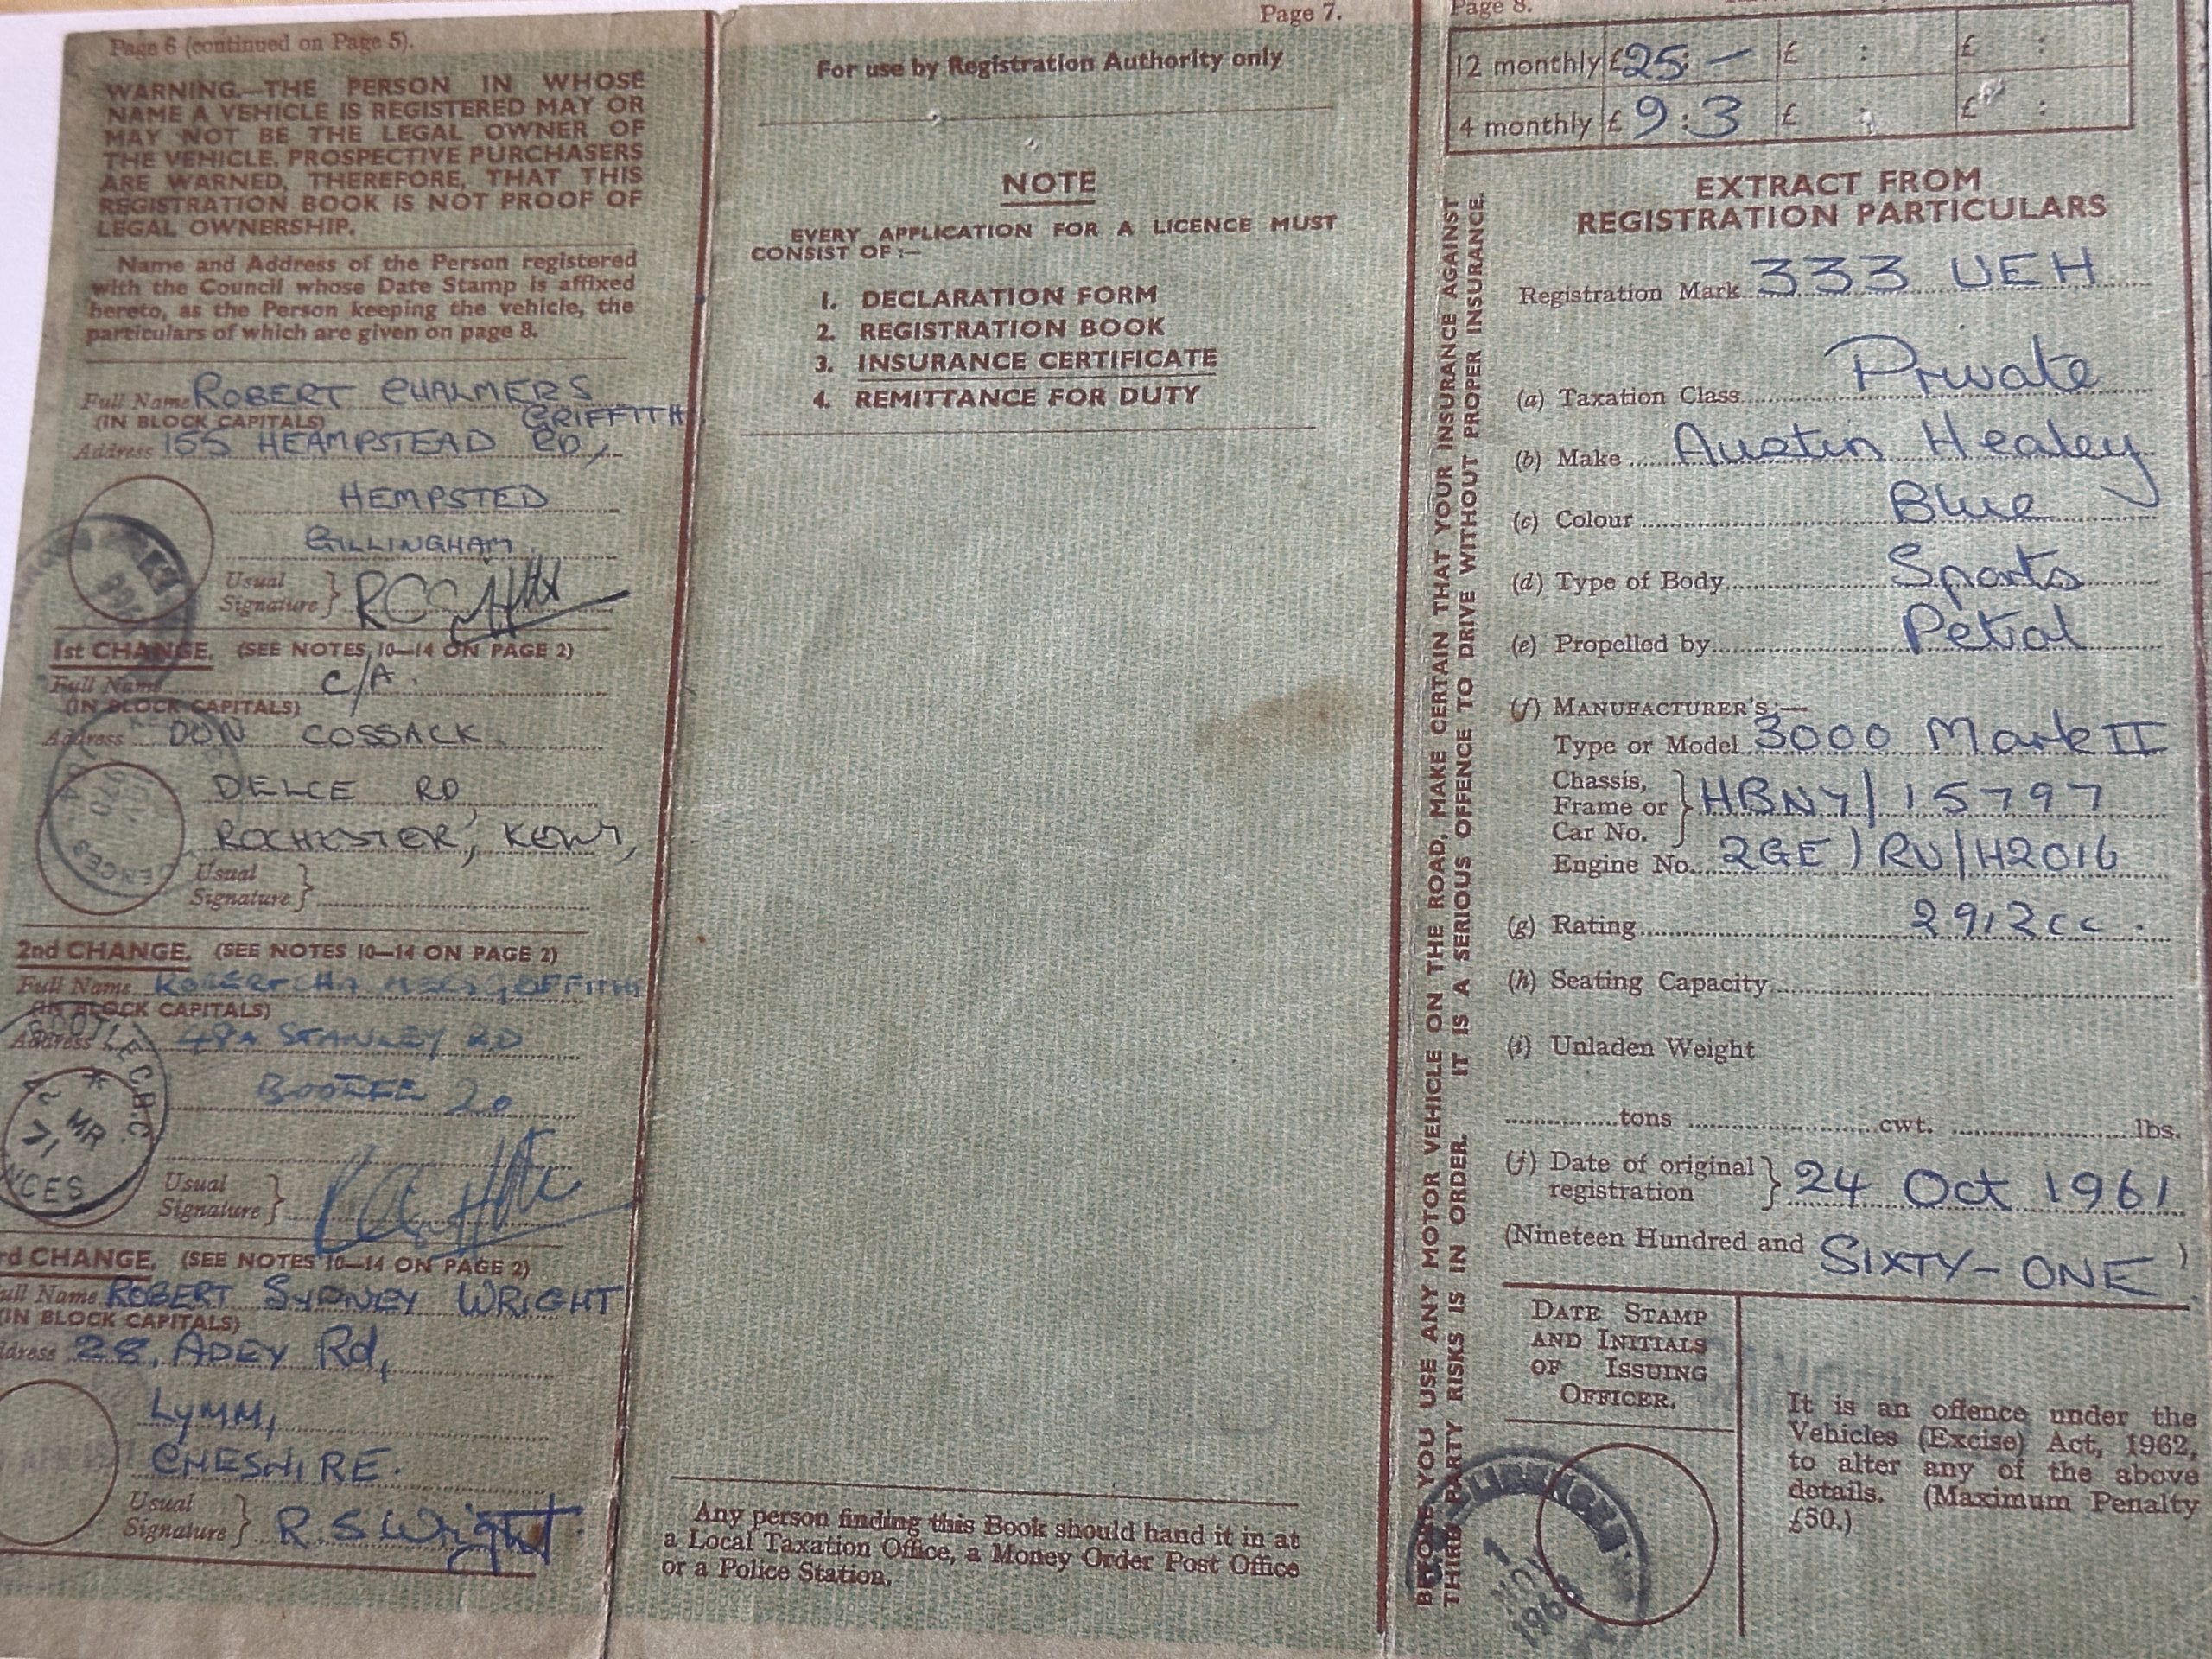 Page 6 (continued on Page 5).
WARNING.—THE PERSON IN WHOSE
NAME A VEHICLE IS REGISTERED MAY OR
MAY NOT BE THE LEGAL OWNER OF
THE VEHICLE. PROSPECTIVE PURCHASERS
ARE WARNED, THEREFORE, THAT THIS
REGISTRATION BOOK IS NOT PROOF OF
LEGAL OWNERSHIP.
Name and Address of the Person registered
with the Council whose Date Stamp is affixed
hereto, as the Person keeping the vehicle, the
particulars of which are given on page 8.
Full Name ROBERT CHALMERS
(IN BLOCK CAPITALS) GRIFFITH
Address 155 HEAMPSTEAD RD,
HEMPSTED
GILLINGHAM
Usual
Signature
1st CHANGE. (SEE NOTES 10—14 ON PAGE 2)
Full Name C/A.
(IN BLOCK CAPITALS)
Address DON COSSACK
DELCE RD,
ROCHESTER, KENT,
Usual
Signature
2nd CHANGE. (SEE NOTES 10—14 ON PAGE 2)
Full Name ROBERT GRIFFITH
(IN BLOCK CAPITALS)
Address 48A STANLEY RD
BOOTLE 20
BOOTLE C.B.C.
2 MR
71
Usual
Signature
rd CHANGE. (SEE NOTES 10—14 ON PAGE 2)
ull Name ROBERT SYDNEY WRIGHT
(IN BLOCK CAPITALS)
dress 28, ADEY Rd,
LYMM,
CHESHIRE.
Usual
Signature R.S Wright
Page 7.
For use by Registration Authority only
NOTE
EVERY APPLICATION FOR A LICENCE MUST
CONSIST OF :—
1. DECLARATION FORM
2. REGISTRATION BOOK
3. INSURANCE CERTIFICATE
4. REMITTANCE FOR DUTY
Any person finding this Book should hand it in at
a Local Taxation Office, a Money Order Post Office
or a Police Station.
BEFORE YOU USE ANY MOTOR VEHICLE ON THE ROAD, MAKE CERTAIN THAT YOUR INSURANCE AGAINST
THIRD PARTY RISKS IS IN ORDER. IT IS A SERIOUS OFFENCE TO DRIVE WITHOUT PROPER INSURANCE.
Page 8.
12 monthly £25: — £ : £ :
4 monthly £ 9:3 £ : £ :
EXTRACT FROM
REGISTRATION PARTICULARS
Registration Mark 333 UEH
(a) Taxation Class Private
(b) Make Austin Healey
(c) Colour Blue
(d) Type of Body Sports
(e) Propelled by Petrol
(f) MANUFACTURER'S:—
Type or Model 3000 Mark II
Chassis,
Frame or HBN7/15797
Car No.
Engine No. 29E/RU/H2016
(g) Rating 2912cc.
(h) Seating Capacity
(i) Unladen Weight
tons cwt. lbs.
(j) Date of original
registration 24 Oct 1961
(Nineteen Hundred and SIXTY-ONE)
DATE STAMP
AND INITIALS
OF ISSUING
OFFICER.
It is an offence under the
Vehicles (Excise) Act, 1962,
to alter any of the above
details. (Maximum Penalty
£50.)